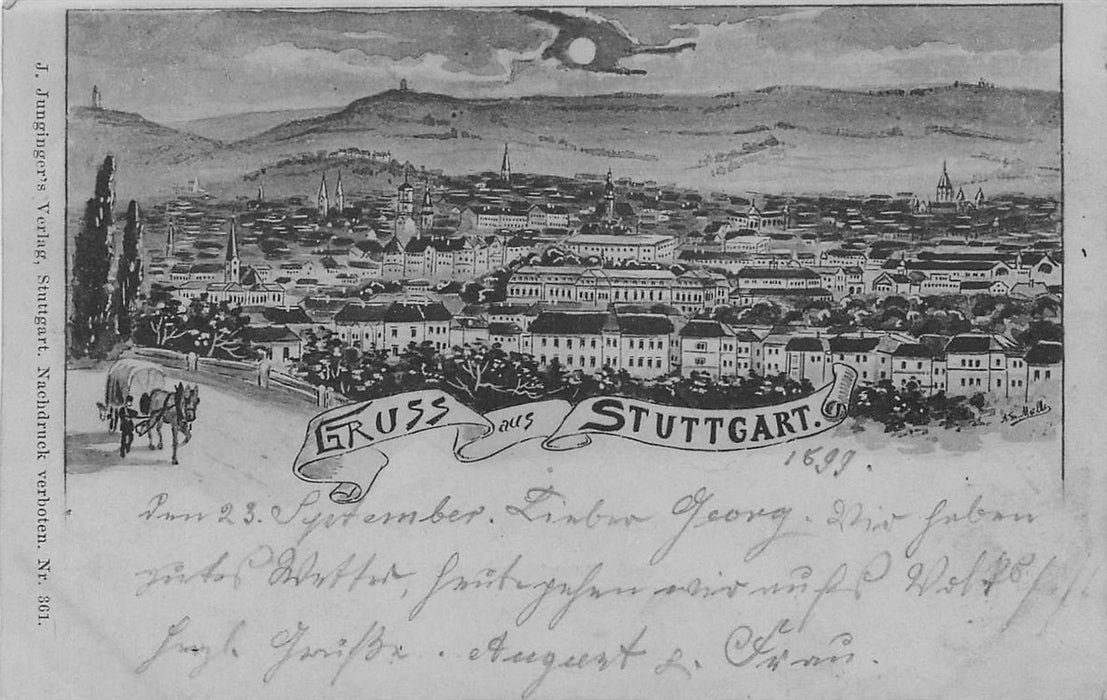 J. Junginger's Verlag, Stuttgart. Nachdruck verboten. Nr. 361.
GRUSS aus STUTTGART.
1899.
den 23. September. Lieber Georg. Wir haben
gutes Wetter, heute gehen wir aufs Volksf
Herzl. Grüße. August u. Frau.